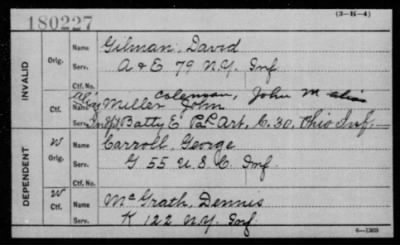 180227
(3-H-4)
INVALID
Orig.
Name Gilman, David
Serv. A & E 79 N.Y. Inf
Ctf. No.
Ctf.
Coleman, John M alias
Name Miller John
Serv. Batty E Art, C. 30, Ohio Inf.
DEPENDENT
W
Orig.
Name Carroll, George
Serv. G 55 U.S.C. Inf.
Ctf. No.
W
Ctf.
Name McGrath, Dennis
Serv. K 122 N.Y. Inf
6-1303